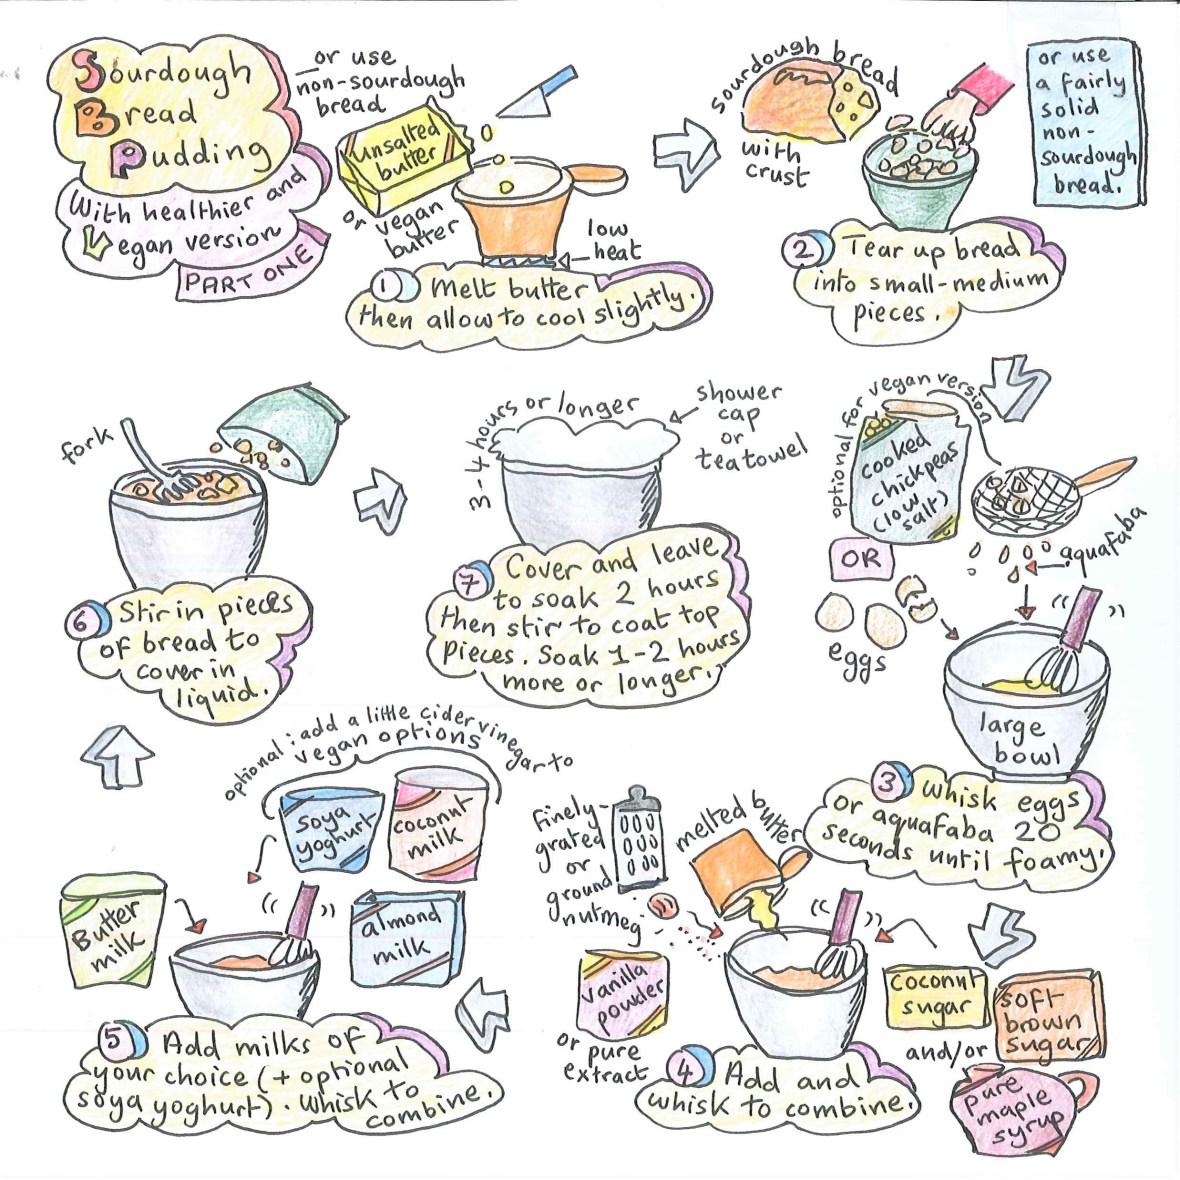 Sourdough
Bread
Pudding
With healthier and
Vegan version
PART ONE
or use
non-sourdough
bread
unsalted
butter
or vegan
butter
low
heat
1 Melt butter
then allow to cool slightly.
sourdough bread
with
crust
or use
a fairly
solid
non-
sourdough
bread.
2 Tear up bread
into small-medium
pieces.
optional for vegan version
cooked
chickpeas
(low
salt)
OR
aquafaba
eggs
large
bowl
3 whisk eggs
or aquafaba 20
seconds until foamy.
Finely-
grated
or
ground
nutmeg
melted butter
vanilla
powder
or pure
extract
coconut
sugar
soft
brown
sugar
and/or
pure
maple
syrup
4 Add and
whisk to combine.
optional: add a little cider vinegar to
vegan options
soya
yoghurt
coconut
milk
Butter
milk
almond
milk
5 Add milks of
your choice (+ optional
soya yoghurt). Whisk to
combine.
fork
6 Stir in pieces
of bread to
cover in
liquid.
3-4 hours or longer
shower
cap
or
teatowel
7 Cover and leave
to soak 2 hours
then stir to coat top
pieces. Soak 1-2 hours
more or longer.